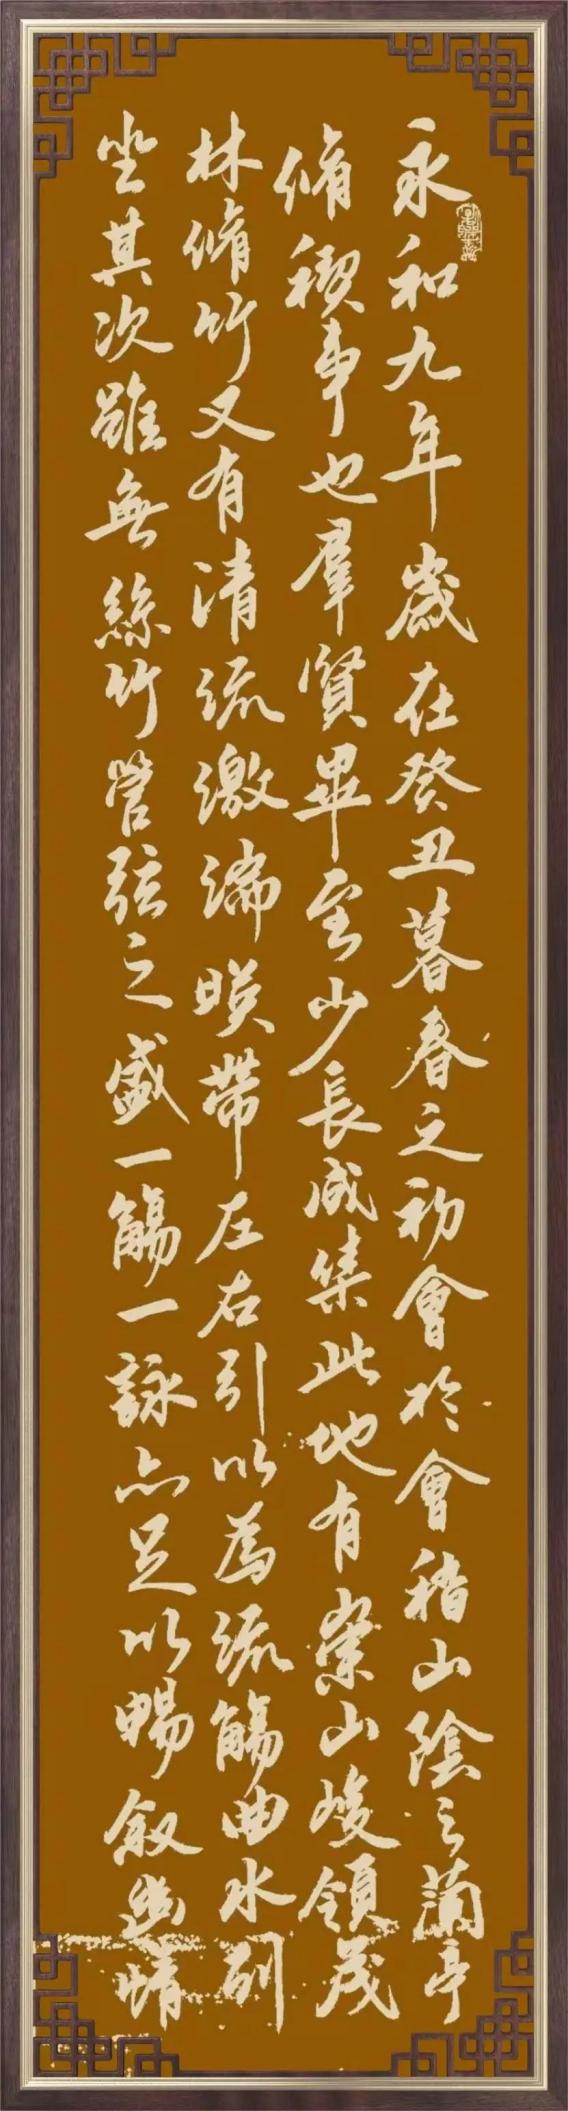 永和九年歲在癸丑暮春之初會於會稽山陰之蘭亭
脩稧事也羣賢畢至少長咸集此地有崇山峻領茂
林脩竹又有清流激湍暎帶左右引以為流觴曲水列
坐其次雖無絲竹管弦之盛一觴一詠亦足以暢叙幽情